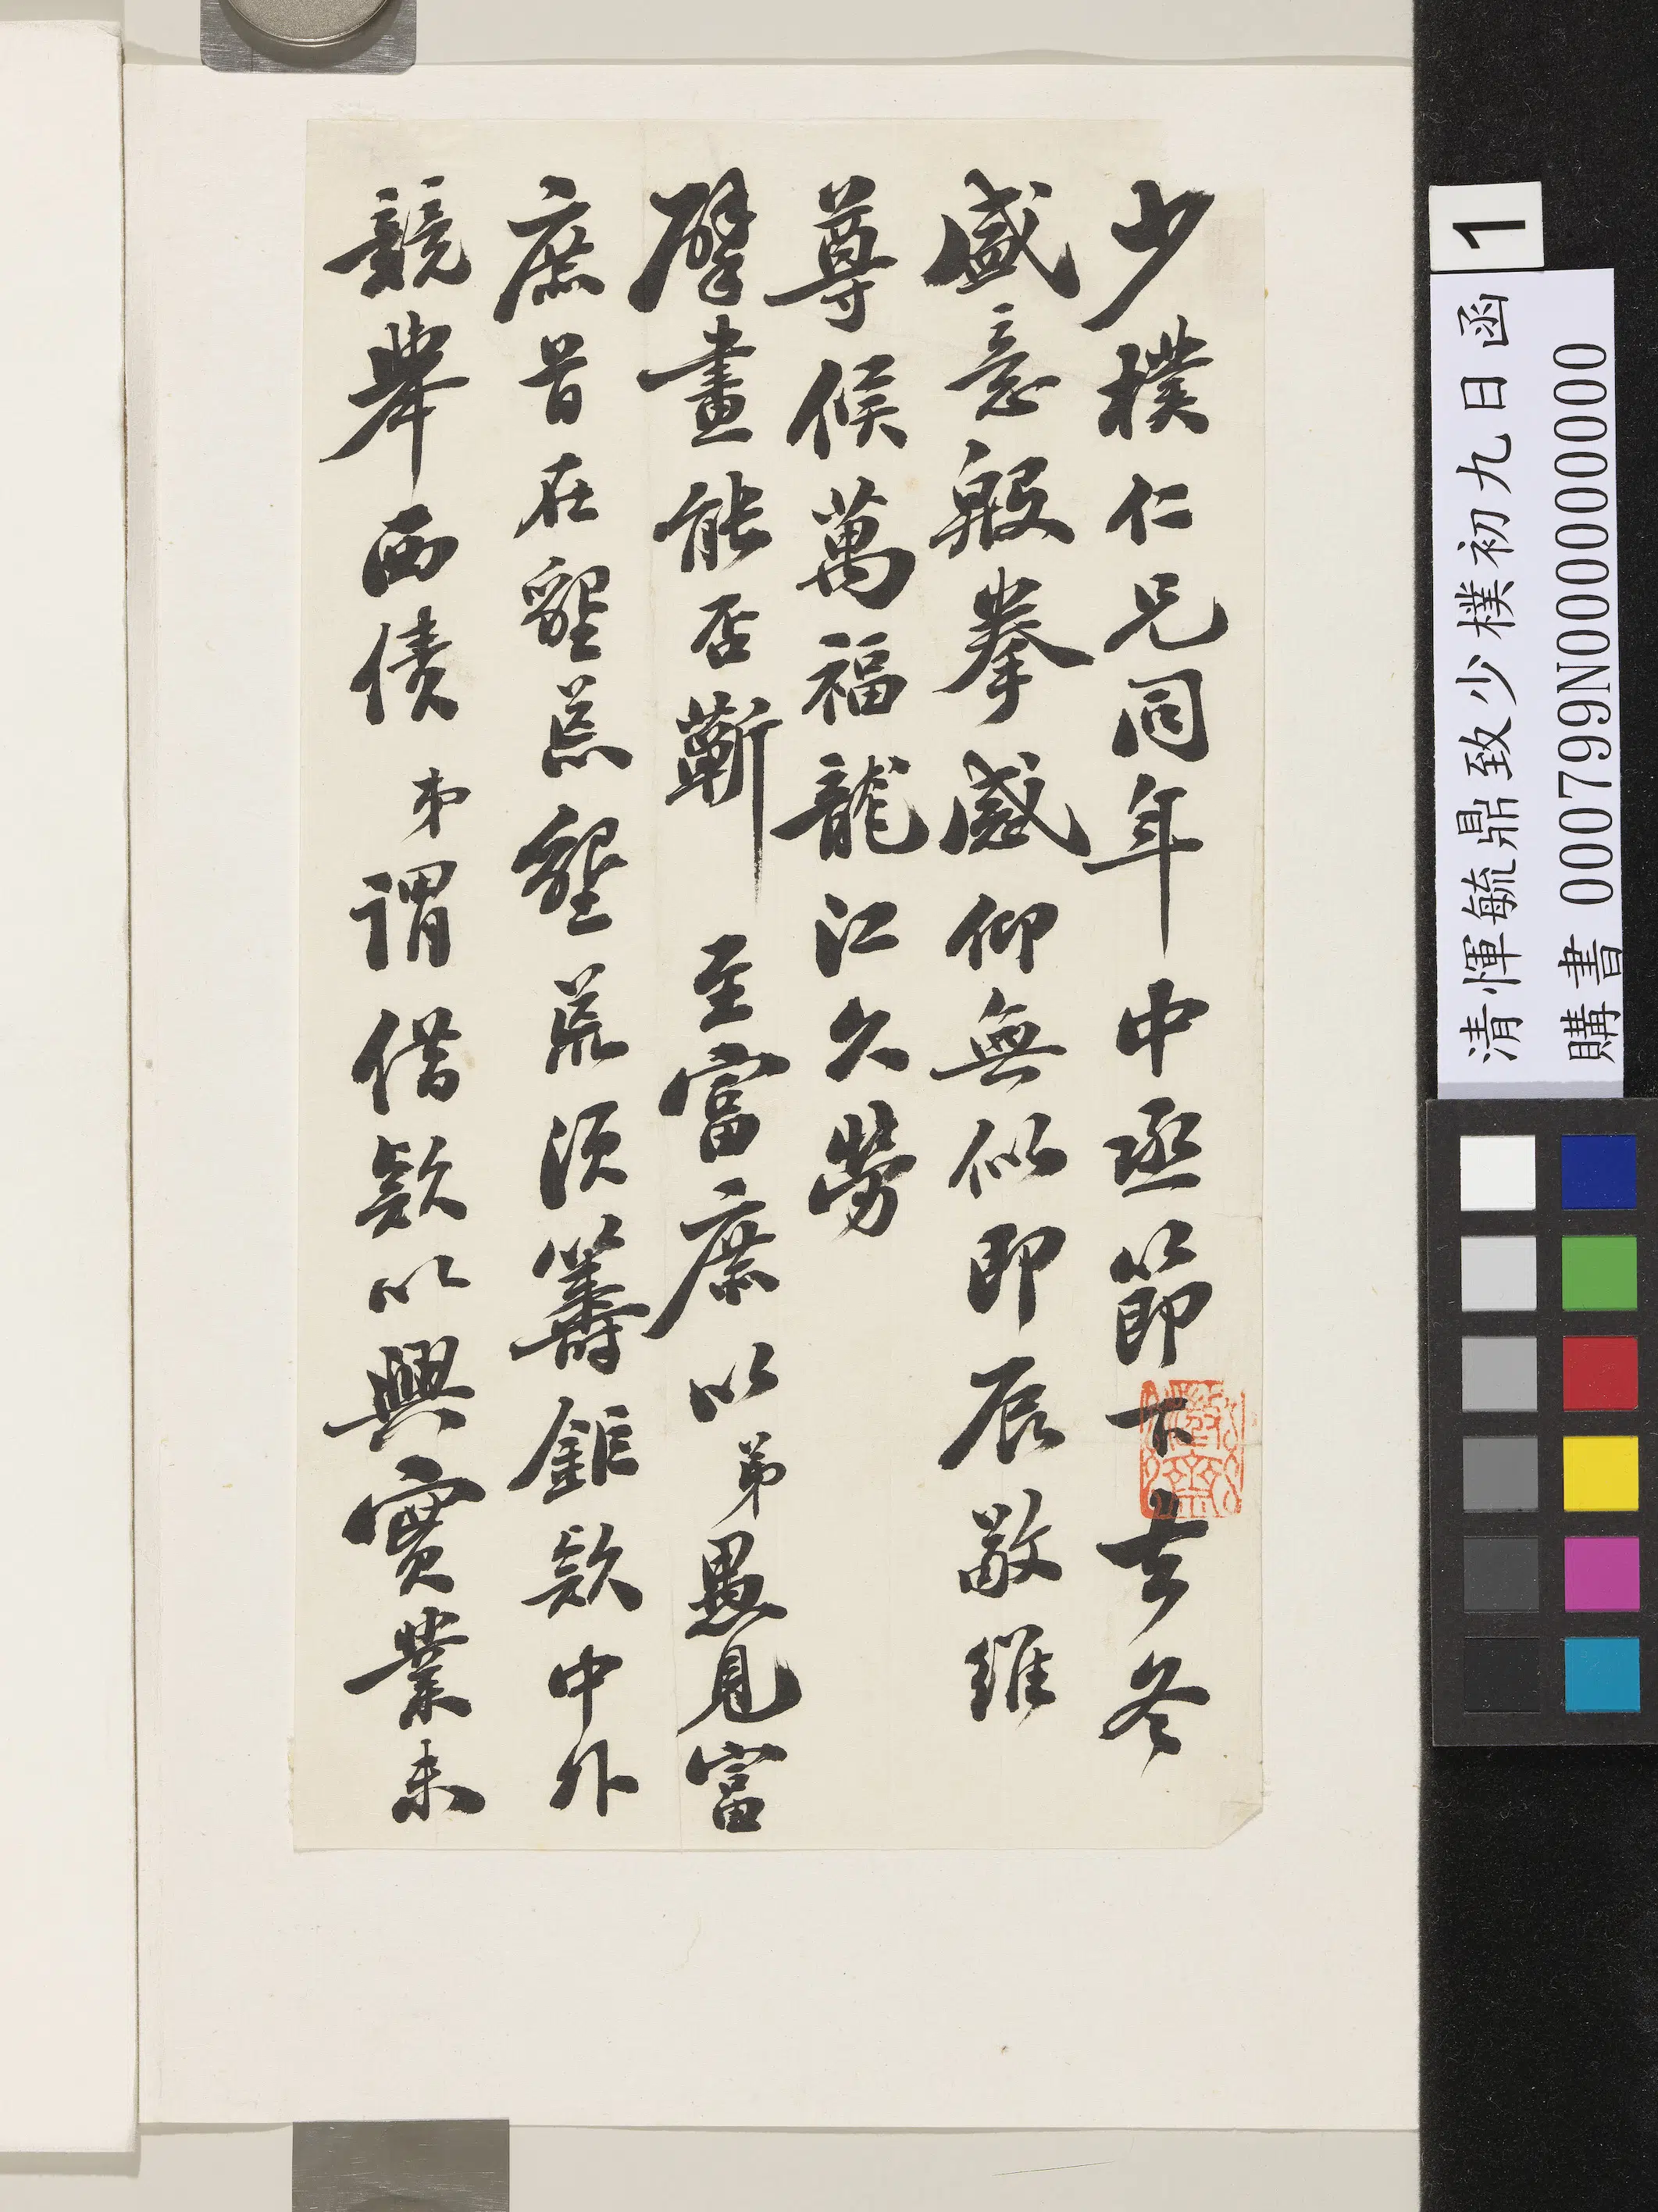 少樸仁兄同年中丞節下去冬
盛意殷拳感仰無似即辰敬維
尊候萬福龍江久勞
擘畫能否蘄至富庶以弟愚見富
庶首在墾荒墾荒須籌鉅欵中外
競舉西債弟謂借欵以興實業未
1
清惲毓鼎致少樸初九日函
購書 000799N000000000